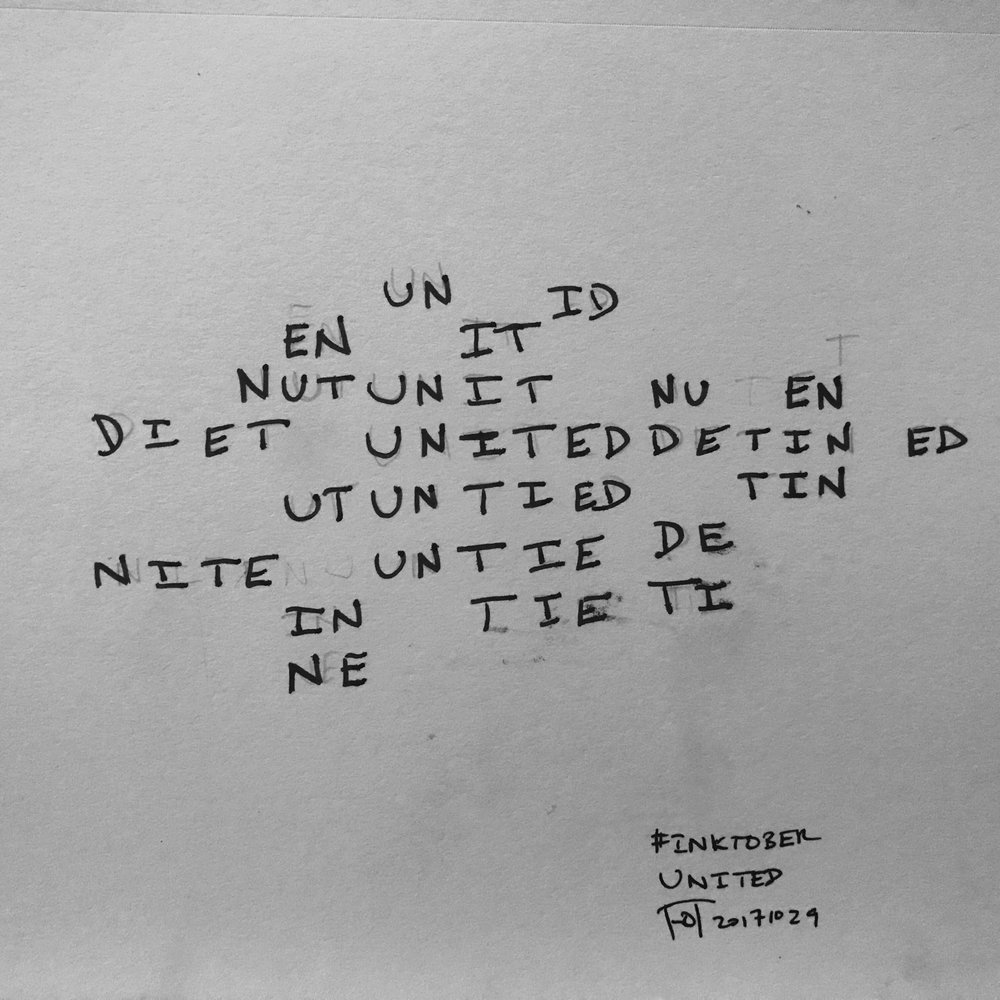 UN ID
EN IT
NUT UNIT NU EN
DIET UNITED DETIN ED
UT UN TIED TIN
NITE UNTIE DE
IN TIE TI
NE
#INKTOBER
UNITED
20171029